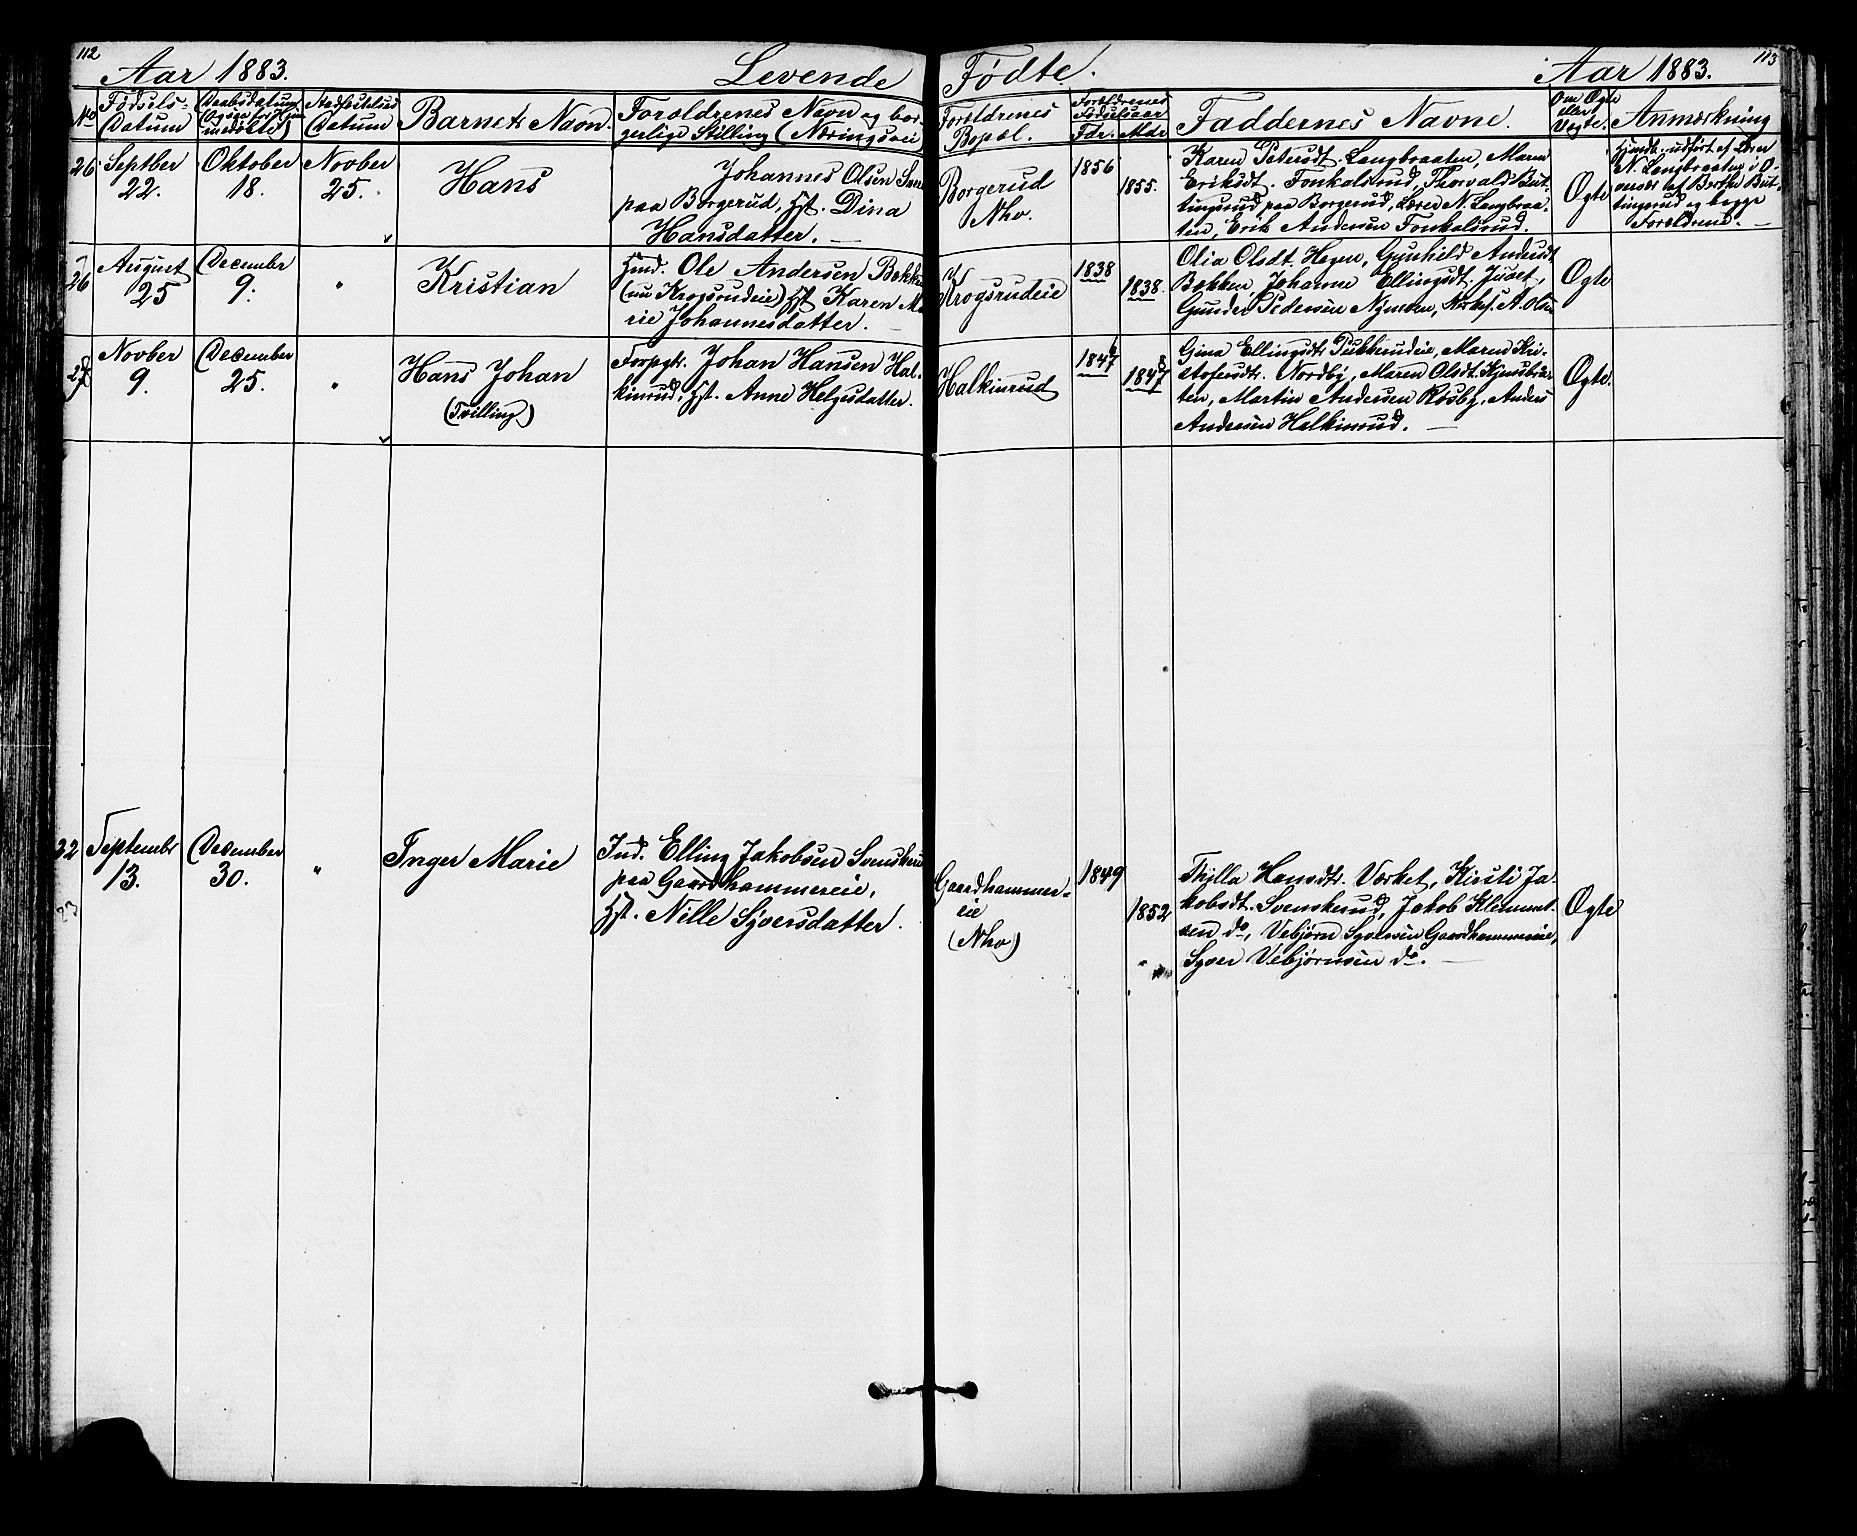 112
Aar 1883.
Levende
Fødte.
Aar 1883.
113
No
Fødsels-
Datum
Daabsdatum
Datum
Barnets Navn.
Forældrenes Navn og bor-
gerlige Stilling (Næringsvei
Forældrenes
Bopæl.
Forældrenes
Fødselsaar
Fdr. Mdr.
Faddernes Navne.
Om Ægte
eller
Uægte.
Anmærkning
26
Septber
22.
Oktober
18.
Novber
25.
Hans
Johannes Olsen
paa Borgerud, Hst. Dina
Hansdatter.
Borgerud
Nho.
1856
1855.
Karen Petersdt. Langbraaten, Maren
Eriksdt. Fonkalsrud, Thorvald But-
tingsrud paa Borgerud, Loren N. Langbraa-
ten, Erik Andersen Fonkalsrud.
Ægte
Hjmdb. udført af Loren
N. Langbraaten i O-
vervær af Berthe But-
tingsrud og begge
Forældrene.
26
August
25
December
9.
"
Kristian
Hmd. Ole Andersen Bakken
(nu Krogsrudeie) Hst. Karen Ma-
rie Johannesdatter.
Krogsrudeie
1838
1838.
Olia Olsdt. Hagen, Gunhild Andersdt
Bakken, Johanne Ellingsdt. Juvet,
Gunder Pedersen Nymoen, Kirks. A. Olsen
Ægte
Novber
9.
December
25.
"
Hans Johan
(Tvilling)
Forpgtr. Johan Hansen Hal-
kinrud, Hst. Anne Helgesdatter.
Halkinrud
1847
1847
Gina Ellingsdt. Pukkerudeie, Maren Kri-
stofersdt. Nordby, Maren Olsdt. Kjensbraa-
ten, Martin Andersen Røsby, Anders
Andersen Halkinrud.
Ægte.
22
23
Septembr
13.
December
30.
"
Inger Marie
Ind. Elling Jakobsen Svenskerud
paa Gaardhammereie,
Hst. Nille Syversdatter.
Gaardhammer-
eie
(Nho)
1849
1852
Thilla Hansdtr. Værket, Kirsti Ja-
kobsdt. Svenskerud, Jakob Klemmet-
sen do, Vebjørn Syversen Gaardhammereie,
Syver Vebjørnsen do.
Ægte